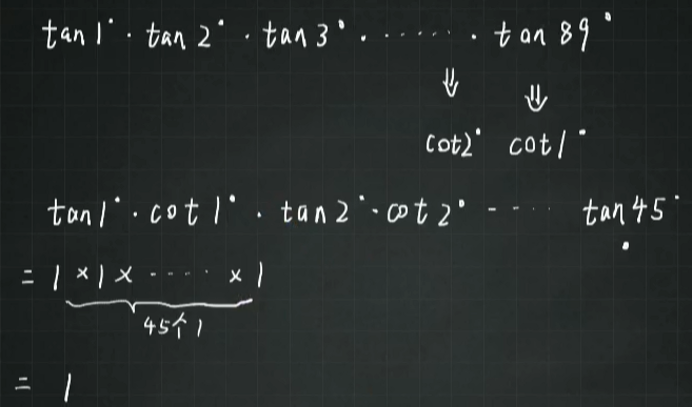 tan1°·tan2°·tan3°·……·tan89°
⇓ ⇓
cot2° cot1°
tan1°·cot1°·tan2°·cot2°---- tan45°
=1×1×-----×1
45个1
=1